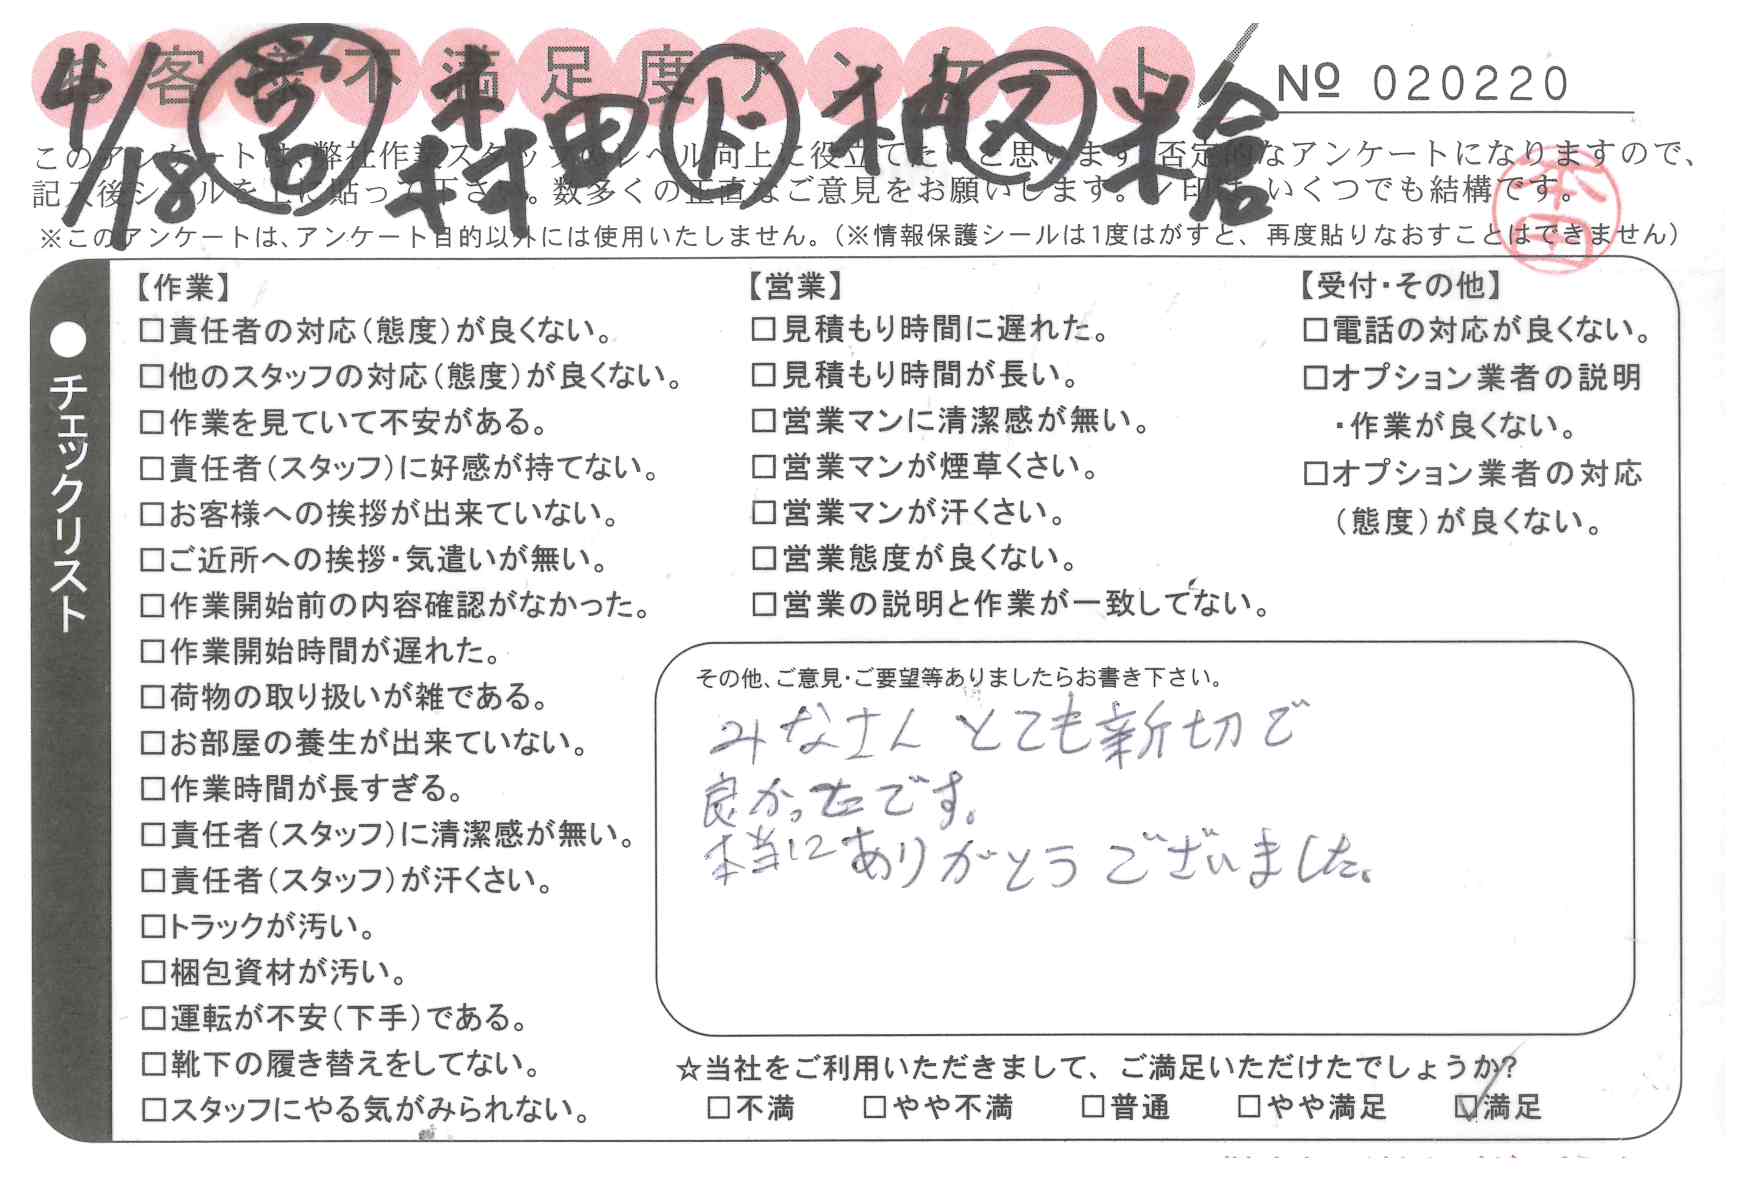 お客様不満足度アンケート
№ 020220
4/18 営 木村田 ド 柚 ス 米倉
このアンケートは、弊社作業スタッフのレベル向上に役立てたいと思います。否定的なアンケートになりますので、
記入後シールを上に貼って下さい。数多くの正直なご意見をお願いします。レ印は、いくつでも結構です。
※このアンケートは、アンケート目的以外には使用いたしません。(※情報保護シールは1度はがすと、再度貼りなおすことはできません)
本田
●チェックリスト
【作業】
□責任者の対応(態度)が良くない。
□他のスタッフの対応(態度)が良くない。
□作業を見ていて不安がある。
□責任者(スタッフ)に好感が持てない。
□お客様への挨拶が出来ていない。
□ご近所への挨拶・気遣いが無い。
□作業開始前の内容確認がなかった。
□作業開始時間が遅れた。
□荷物の取り扱いが雑である。
□お部屋の養生が出来ていない。
□作業時間が長すぎる。
□責任者(スタッフ)に清潔感が無い。
□責任者(スタッフ)が汗くさい。
□トラックが汚い。
□梱包資材が汚い。
□運転が不安(下手)である。
□靴下の履き替えをしてない。
□スタッフにやる気がみられない。
【営業】
□見積もり時間に遅れた。
□見積もり時間が長い。
□営業マンに清潔感が無い。
□営業マンが煙草くさい。
□営業マンが汗くさい。
□営業態度が良くない。
□営業の説明と作業が一致してない。
【受付・その他】
□電話の対応が良くない。
□オプション業者の説明
・作業が良くない。
□オプション業者の対応
(態度)が良くない。
その他、ご意見・ご要望等ありましたらお書き下さい。
みなさん とても新切で
良かったです。
本当にありがとうございました。
☆当社をご利用いただきまして、ご満足いただけたでしょうか?
□不満 □やや不満 □普通 □やや満足 ☑満足